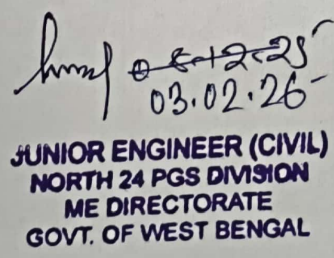 03.02.26
JUNIOR ENGINEER (CIVIL)
NORTH 24 PGS DIVISION
ME DIRECTORATE
GOVT. OF WEST BENGAL